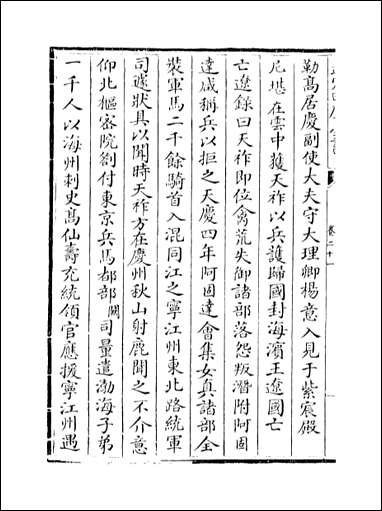 勒高居慶副使大夫守大理卿楊意入見于紫宸殿
尼堪在雲中獲天祚以兵護歸國封海濱王遼國亡
亡遼録曰天祚即位禽荒失御諸部落怨叛潛附阿固
達咸稱兵以拒之天慶四年阿固達會集女真諸部全
裝軍馬二千餘騎首入混同江之寧江州東北路統軍
司遽狀具以聞時天祚方在慶州秋山射鹿聞之不介意
仰北樞密院劄付東京兵馬都部闕司量遣渤海子弟
一千人以海州刺史髙仙壽充統領官應援寧江州遇